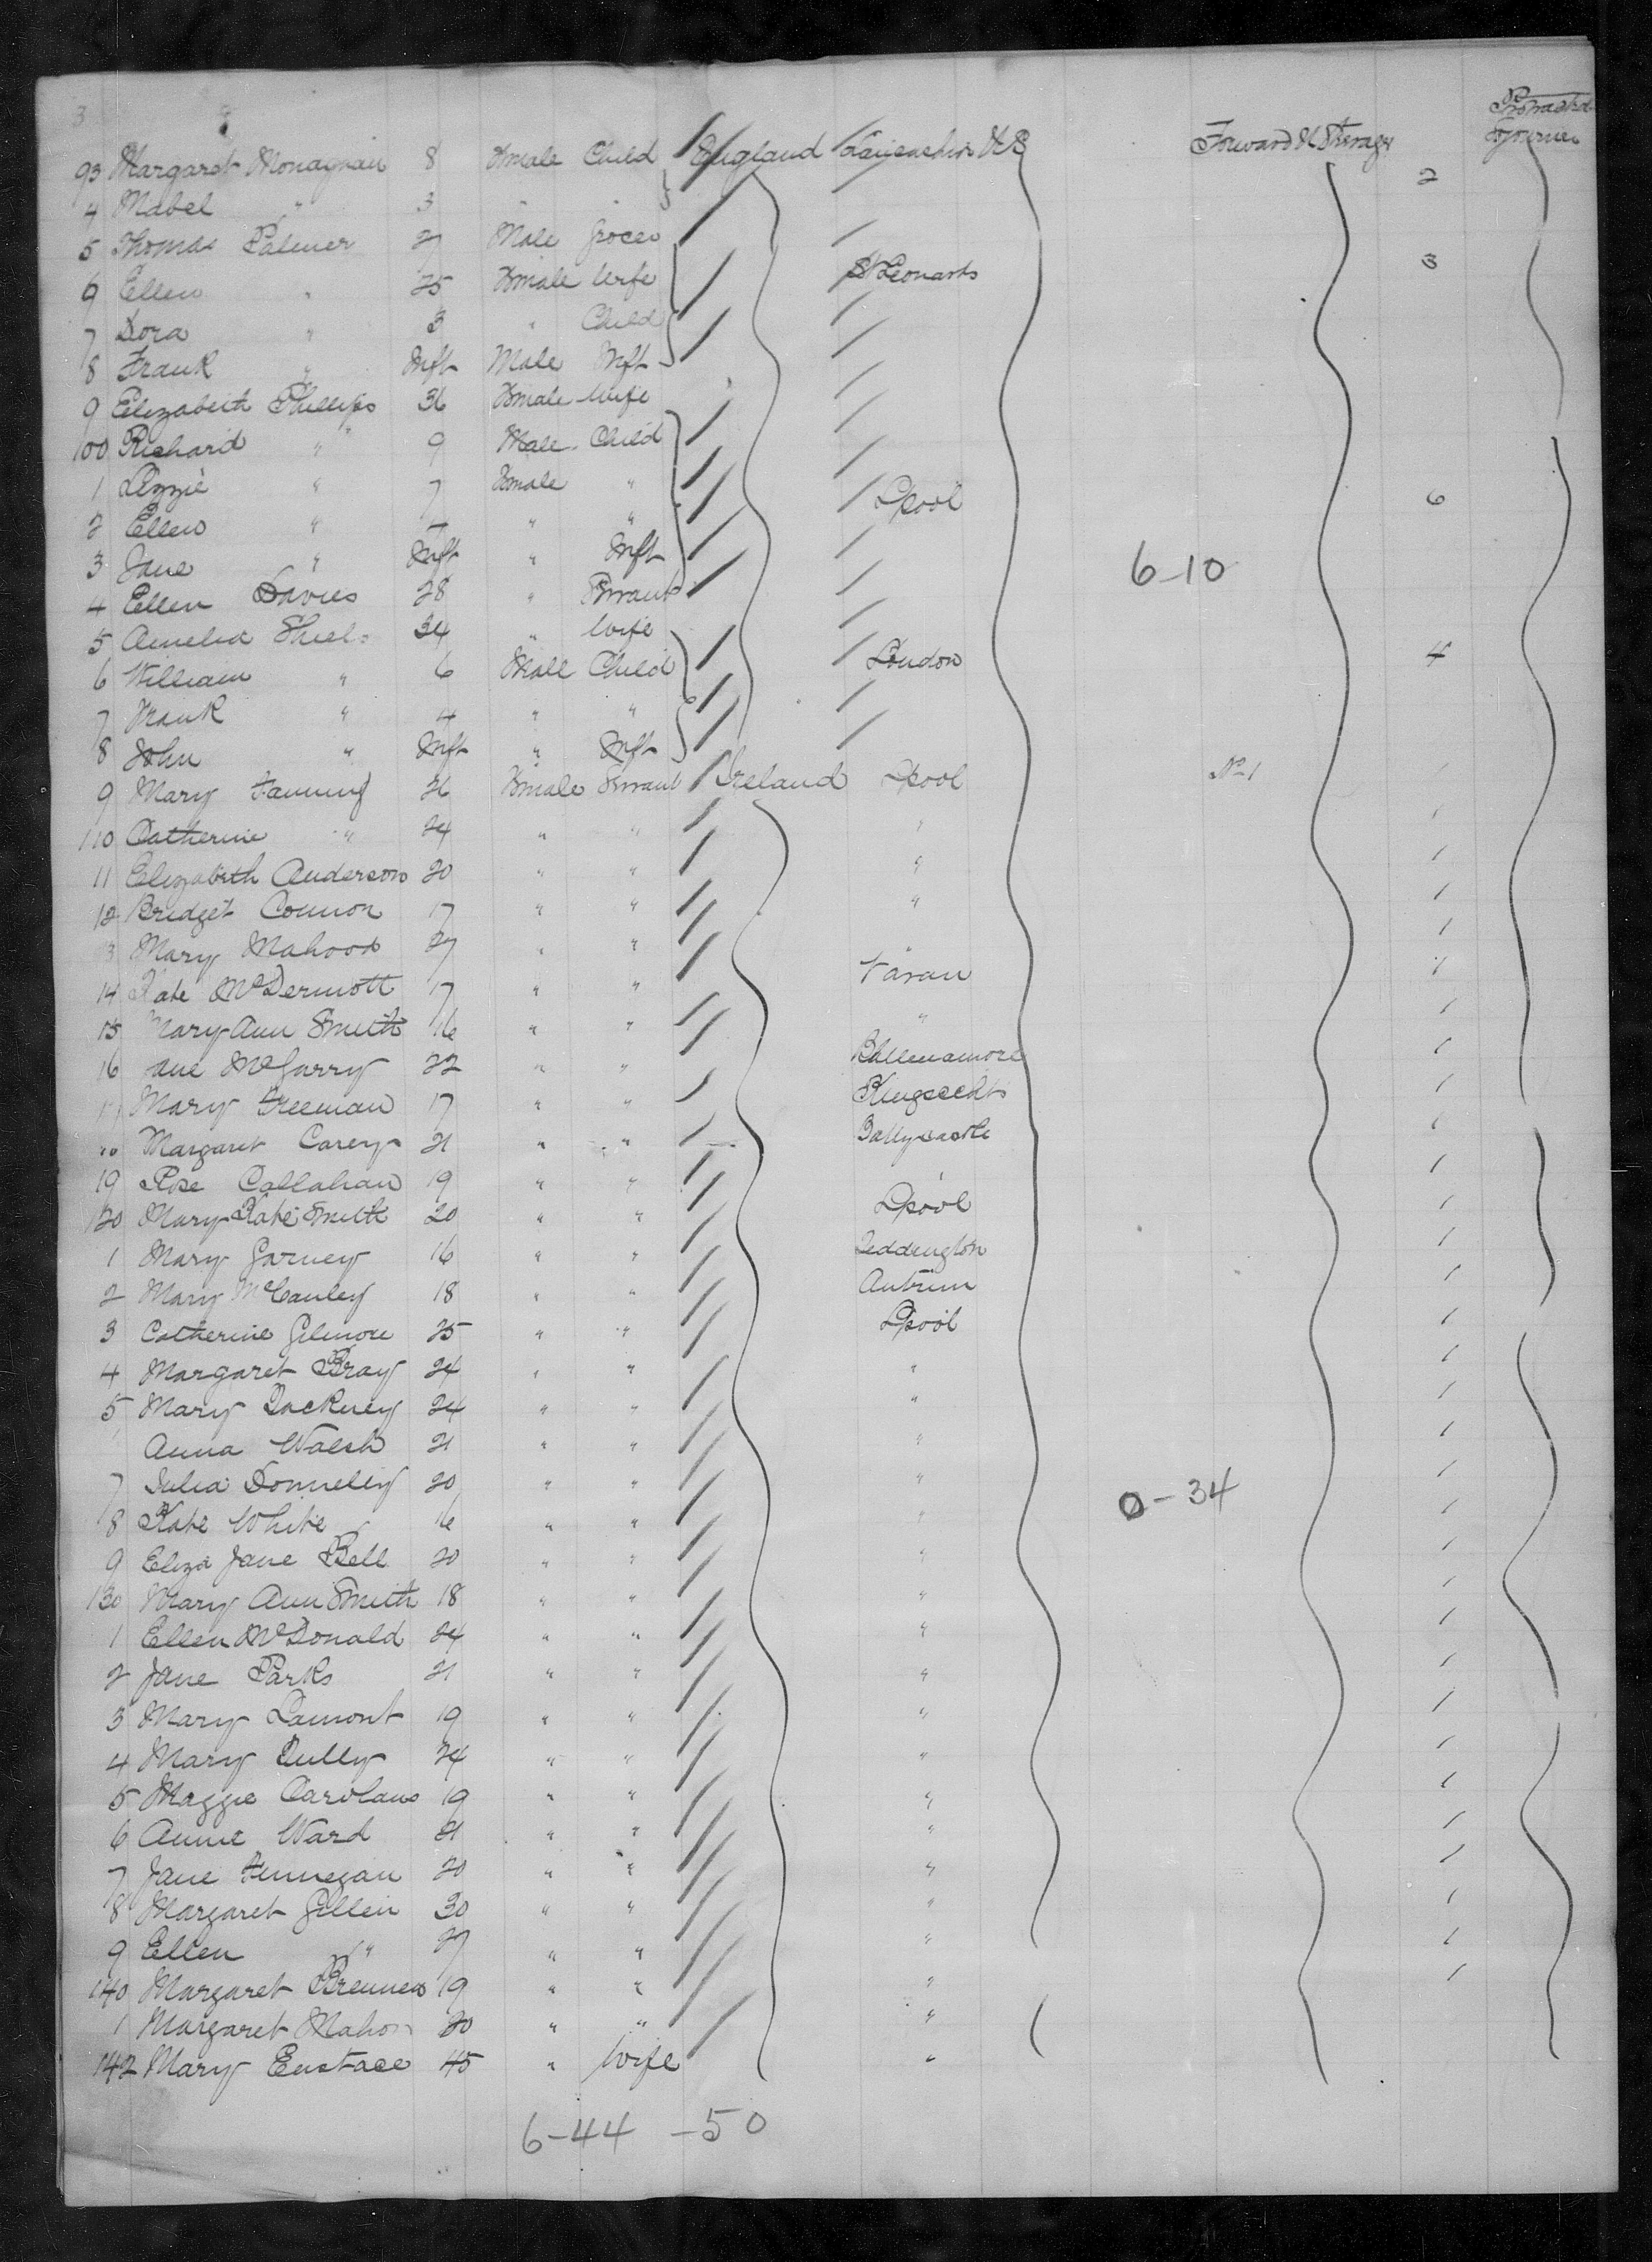 3
Forward & Steerage Protracted Sojourn
93 Margaret Monaghan 8 Female Child England Lancashire U S 2
4 Mabel " 3 " "
5 Thomas Palmer 27 Male Grocer
6 Ellen " 25 Female Wife St Leonards 3
7 Dora " 3 " Child
8 Frank " Inft Male Inft
9 Elizabeth Phillips 36 Female Wife
100 Richard " 9 Male Child
1 Lizzie " 7 Female " Lpool 6
2 Ellen " " "
3 Jane " Inft " Inft 6-10
4 Ellen Davies 28 " Servant
5 Amelia Shiel 34 " Wife
6 William " 6 Male Child London 4
7 Frank " 4 " "
8 John " Inft " Inft
9 Mary Fanning 26 Female Servant Ireland Lpool No 1 1
110 Catherine " 24 " " " 1
11 Elizabeth Anderson 20 " " " 1
12 Bridget Connon 17 " " " 1
3 Mary Mahood 27 " " 1
14 Kate McDermott 17 " " 1
15 Mary Ann Smith 16 " " " 1
16 ane McGarry 22 " " Ballenamore 1
17 Mary Freeman 17 " " 1
Margaret Carey 21 " " Ballycastle 1
19 Rose Callahan 19 " " 1
120 Mary Kate Smith 20 " " Lpool 1
1 Mary Garney 16 " " Teddington 1
2 Mary McCauley 18 " " Antrim 1
3 Catherine Gilmore 25 " " Lpool 1
4 Margaret Bray 24 " " " 1
5 Mary Dackney 24 " " " 1
Anna Walsh 21 " " " 1
7 Julia Donnelly 20 " " " 1
8 Kate White 16 " " " 0-34 1
9 Eliza Jane Bell 20 " " " 1
130 Mary Ann Smith 18 " " " 1
1 Ellen McDonald 24 " " " 1
2 Jane Parks 21 " " " 1
3 Mary Lamont 19 " " " 1
4 Mary Tully 24 " " " 1
5 Maggie Carolans 19 " " " 1
6 Annie Ward 21 " " " 1
7 Jane Finnegan 20 " " " 1
8 Margaret Gillen 30 " " " 1
9 Ellen " 27 " " " 1
140 Margaret Brennen 19 " " " 1
1 Margaret Mahon 20 " " "
142 Mary Eustace 45 " Wife "
6-44 -50